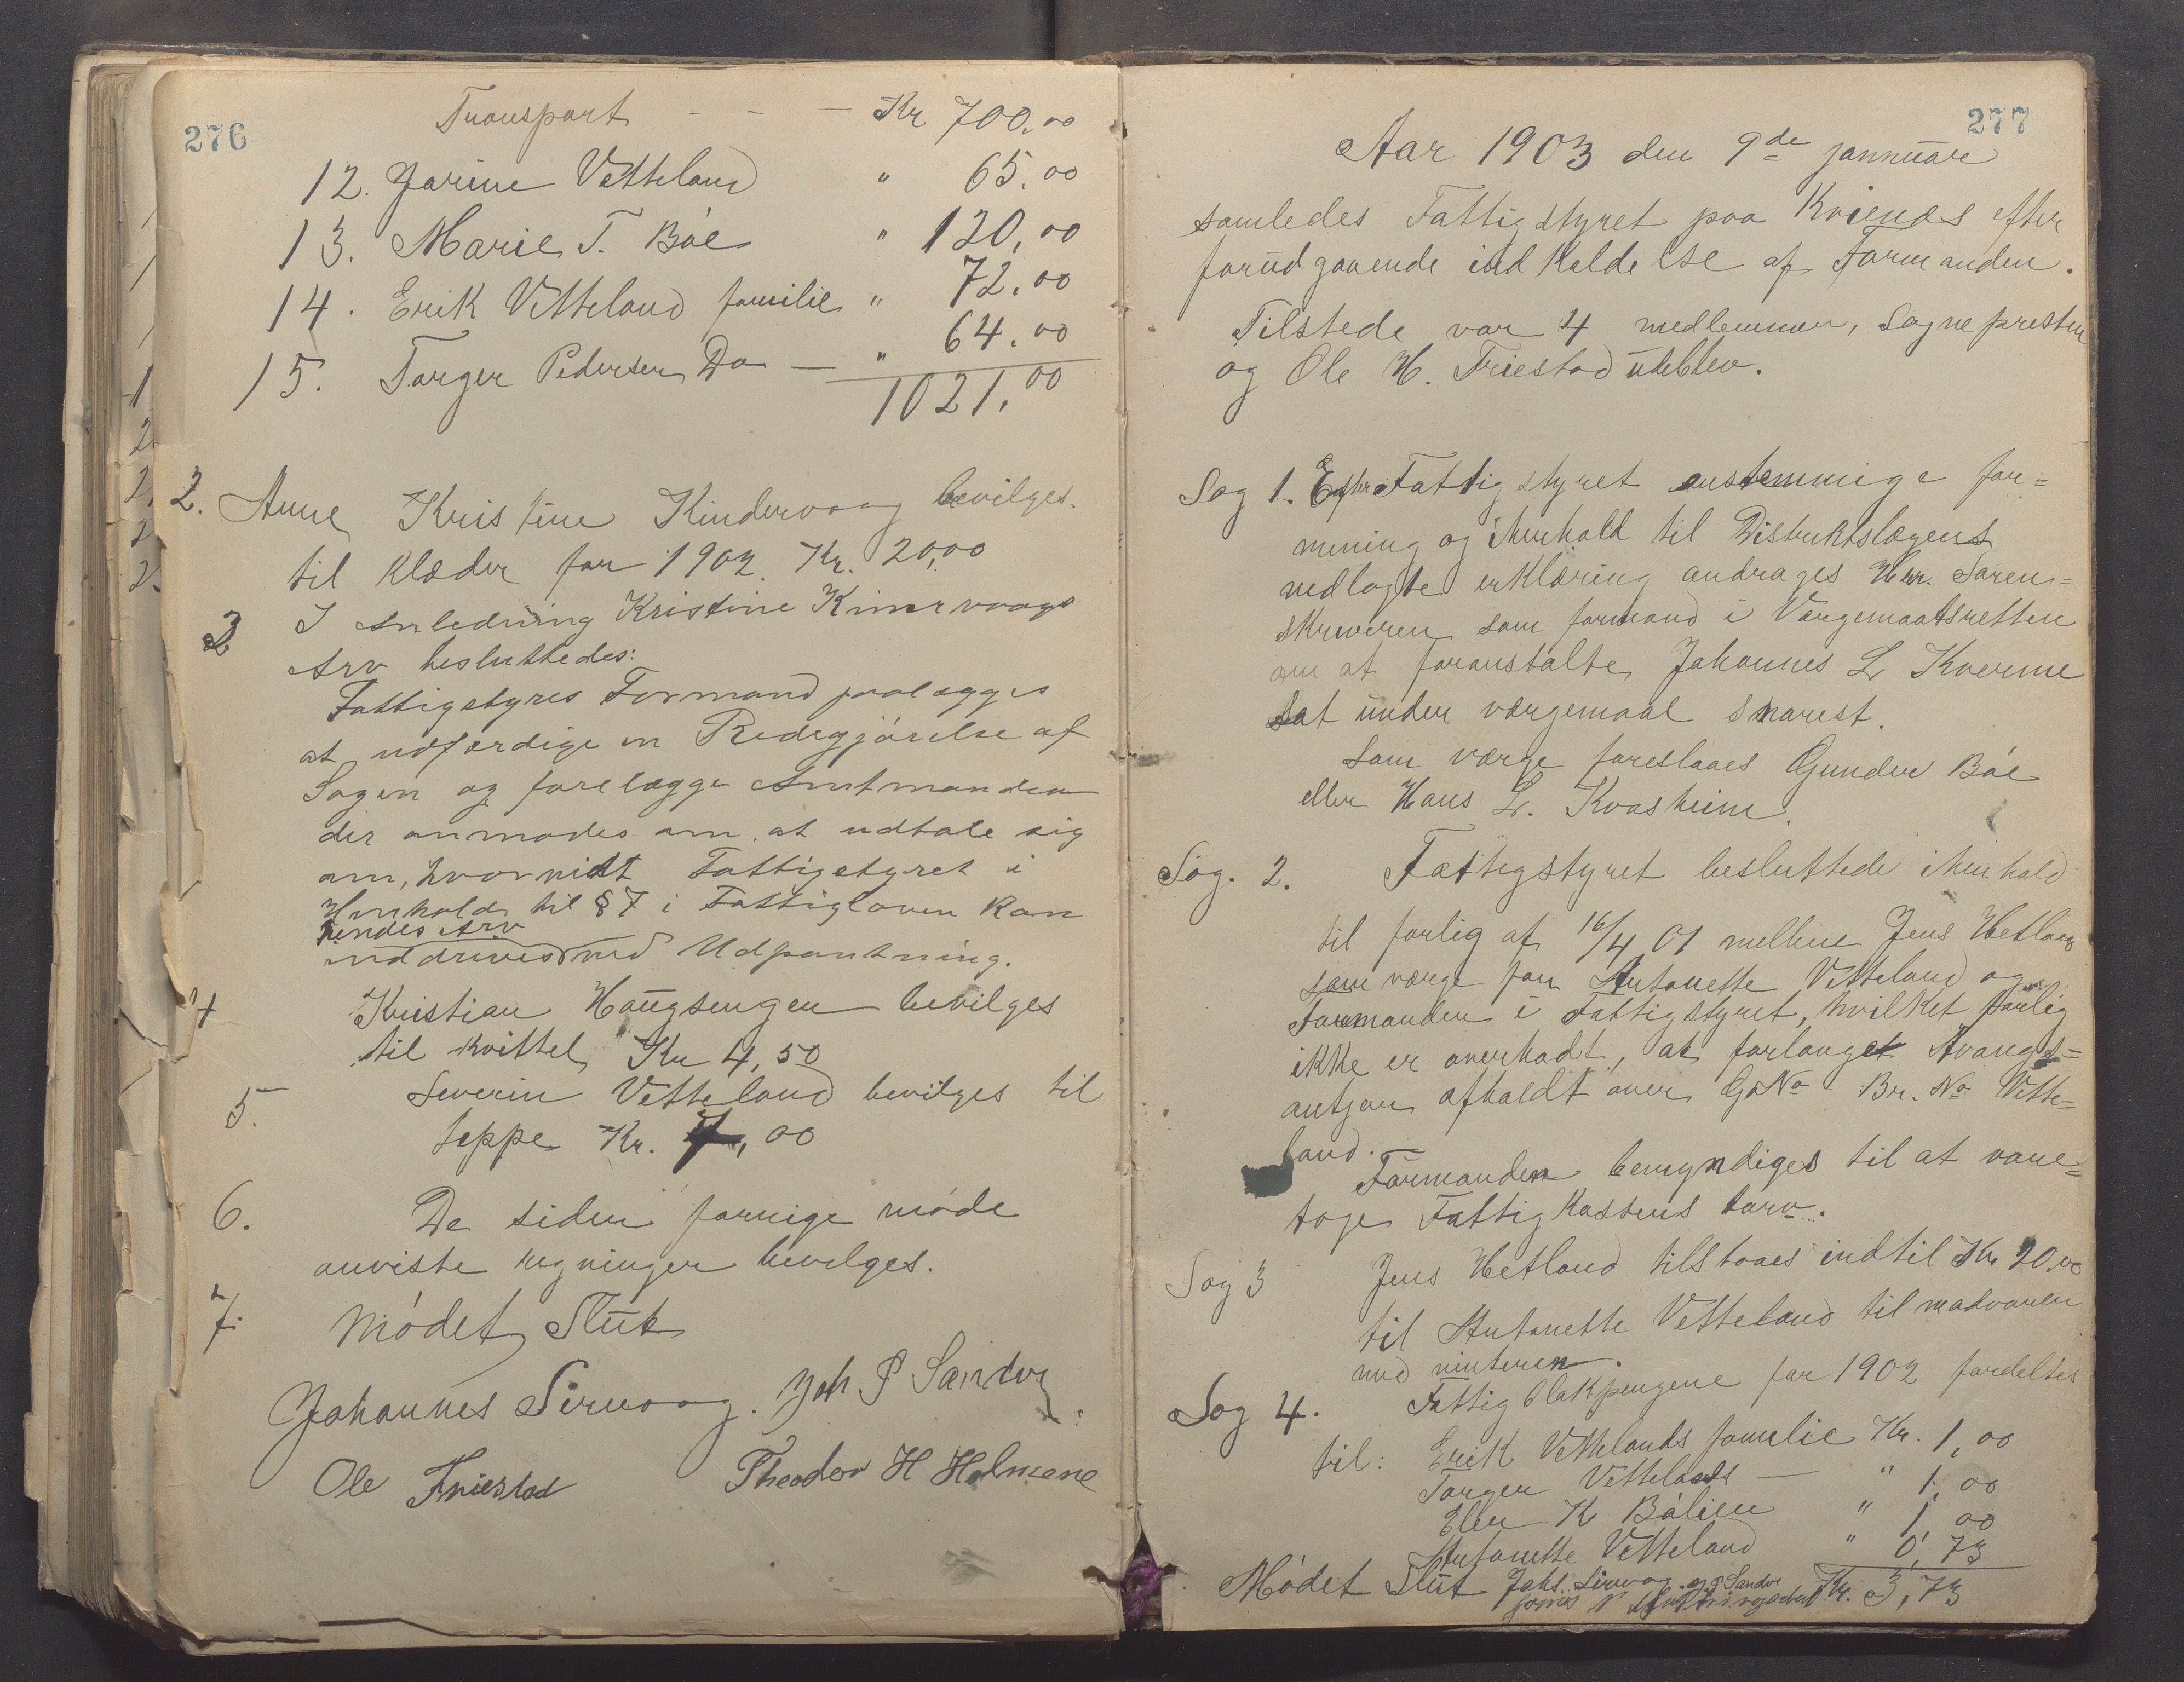 276
Transport - - - Kr 700.00
12. Jarine Vetteland " 65.00
13. Marie T. Böe " 120,00
14. Erik Vetteland familie " 72.00
15. Targer Pedersen Do — " 64.00
1021,00
2. Anne Kristine Kindervaag bevilges
til klæder for 1902 Kr. 20,00
3 I Anledning Kristine Kinervaags
Arv besluttedes:
Fattigstyres Formand paalægges
at udfærdige en Redegjörelse af
Sagen og forelægge Amtmanden
der anmodes om at udtale sig
om, hvorvidt Fattigstyret i
Henhold til § 7 i Fattigloven kan
hendes Arv
inddrives ved Udpantning.
4 Kristian Haugsengen bevilges
til kvittel Kr 4,50
5. Severin Vetteland bevilges til
teppe Kr. 7,00
6. De siden forrige möde
anviste regninger bevilges.
7. Mödet Slut
Johannes Sirevaag. Joh P Sandve
Ole Friestad Theodor H Holmene
277
Aar 1903 den 9de januar
samledes Fattigstyret paa Kvienes efter
forudgaaende indkaldelse af Formanden.
Tilstede var 4 medlemmer, Sognepresten
og Ole H. Friestad udeblev.
Sag 1. Efter Fattigstyret enstemmige for=
mening og ihenhold til Distriktslægens
vedlagte erklæring andrages Hrr. Soren=
skriveren som formand i Værgemaalsretten
om at foranstalte Johannes L Kverme
sat under værgemaal snarest.
Som værge foreslaaes Gunder Böe
eller Hans L. Kvasheim.
Sag. 2. Fattigstyret besluttede ihenhold
til forlig af 16/4 01 mellem Jens Hetland
som værge for Antonette Vetteland og
Formanden i Fattigstyret, hvilket forlig
ikke er overholdt, at forlanget tvangs=
auksjon afholdt over G No Br. No Vette=
land.
Formanden bemyndiges til at vare=
tage Fattigkassens tarv.
Sag 3 Jens Hetland tilstaaes indtil Kr 20.00
til Antonette Vetteland til madvarer
ved vinteren.
Sag 4. Fattigblokpengene for 1902 fordeltes
til: Erik Vettelands familie Kr. 1,00
Targer Vettelands — " 1,00
Elen K Bölien " 1,00
Antonette Vetteland " 0,73
Kr. 3,73
Mödet Slut Johs. Sirevaag. J P Sandve